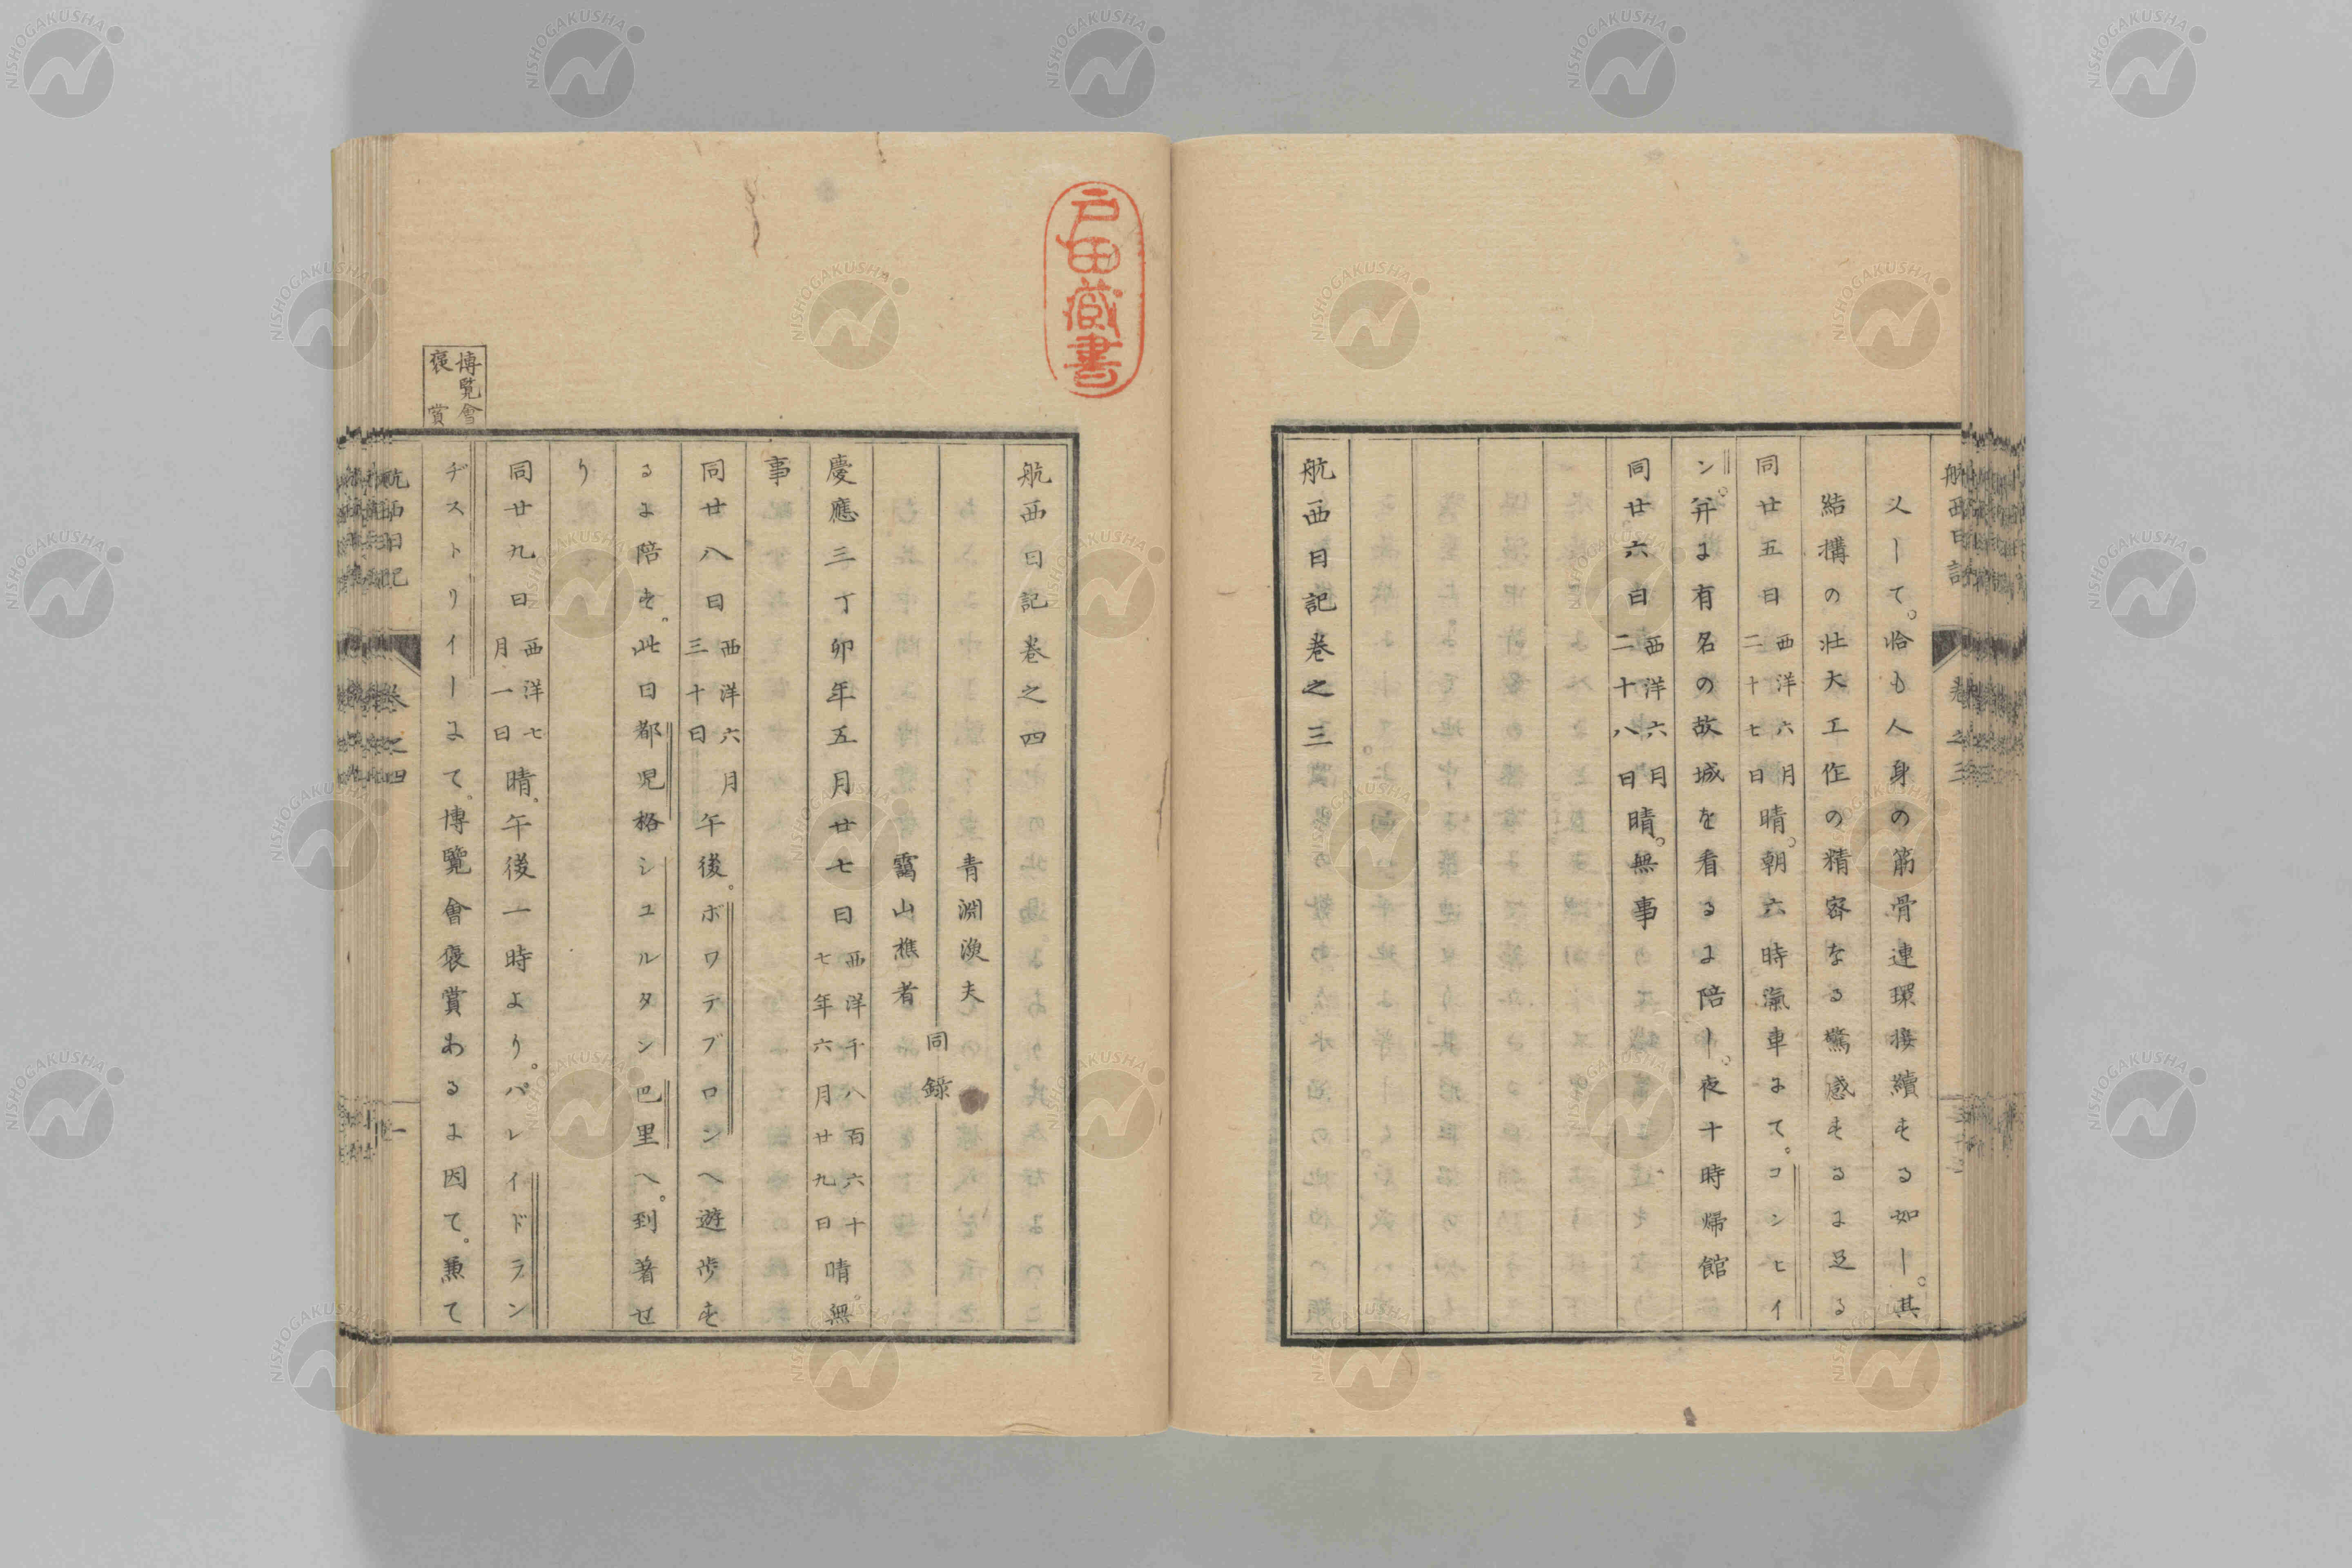 乄して。恰も人身の筋骨連環接續する如し。其
結構の壮大工作の精密なる驚感するに足る
同廿五日西洋六月二十七日晴。朝六時滊車にて。コンヒイ
ン。弁に有名の故城を看るに陪し。夜十時帰館
同廿六日西洋六月二十八日晴。無事
航西日記巻之三
航西日記
巻之三
戸田蔵書
航西日記巻之四
青淵漁夫
靄山樵者
同錄
慶應三丁卯年五月廿七日西洋千八百六十七年六月廿九日晴。無
事
同廿八日西洋六月三十日午後。ボワデブロンへ遊歩す
るに陪す。此日都児格シユルタン巴里へ。到着せ
り
同廿九日西洋七月一日晴。午後一時より。パレイドラン
博覧會褒賞
ヂストリイーにて。博覽會褒賞あるに因て。兼て
航西日記
巻之四
一
NISHOGAKUSHA